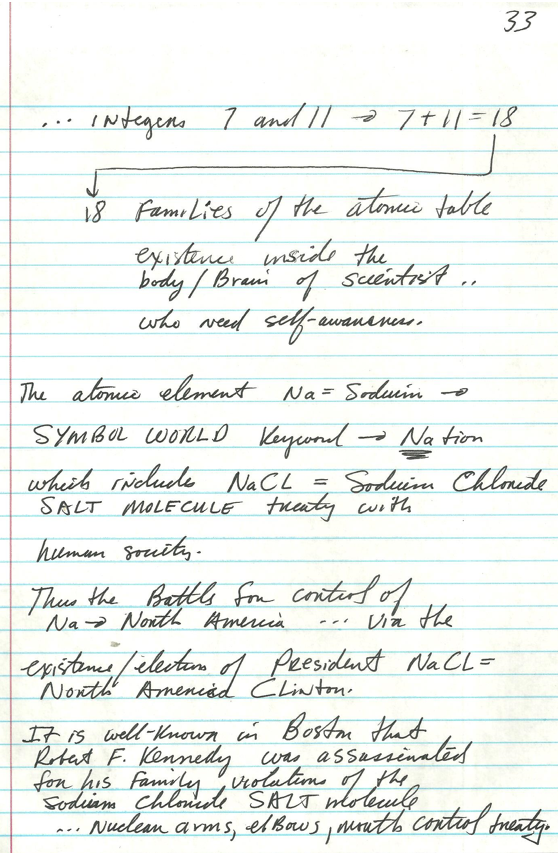 33
... integers 7 and 11 → 7+11=18
18 Families of the atomic table
existence inside the
body/Brain of scientist ..
who need self-awareness.
The atomic element Na = Sodium →
SYMBOL WORLD Keyword → Nation
which include NaCL = Sodium Chloride
SALT MOLECULE treaty with
human society.
Thus the Battle for control of
Na → North America ... via the
existence/election of President NaCL =
North America Clinton.
It is well-known in Boston that
Robert F. Kennedy was assassinated
for his family violations of the
Sodium Chloride SALT molecule
... Nuclear arms, elBows, mouth control treaty.